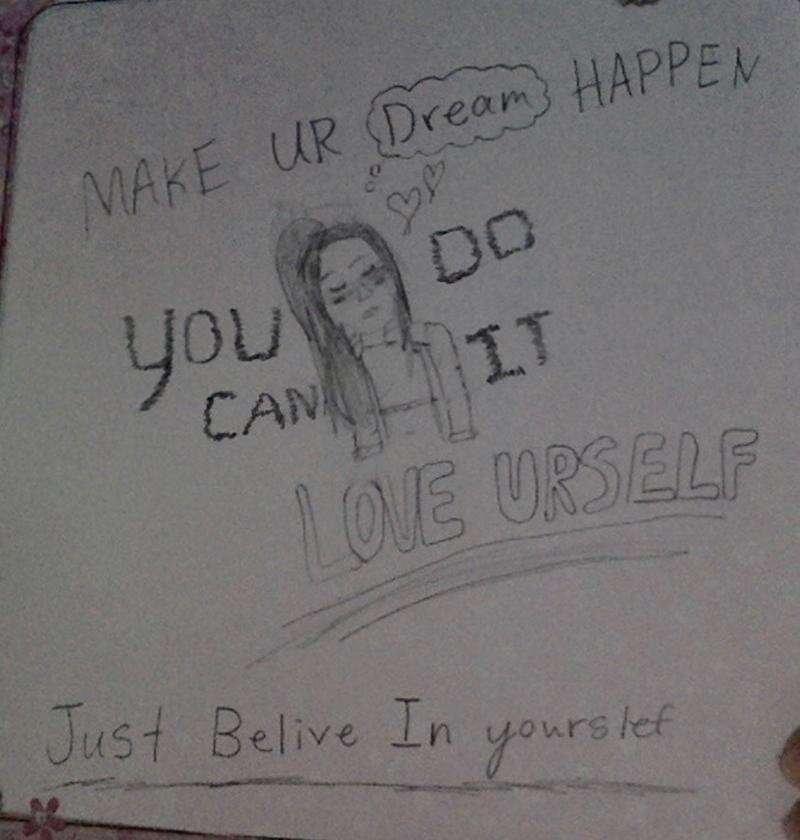 MAKE UR Dream HAPPEN
YOU CAN DO IT
LOVE URSELF
Just Belive In yourslef